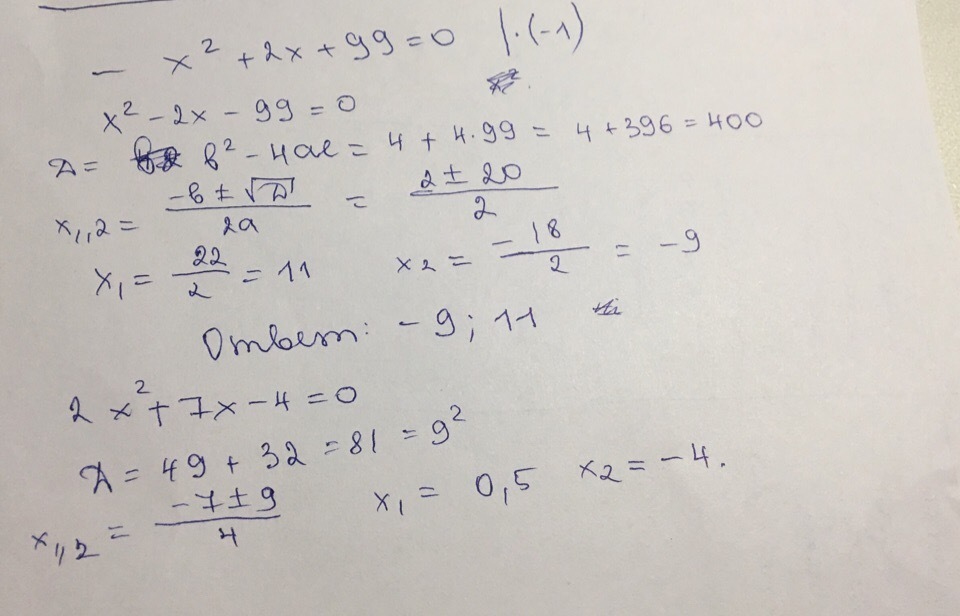 - x² + 2x + 99 = 0 | · (-1)
x² - 2x - 99 = 0
D = b² - 4ac = 4 + 4·99 = 4 + 396 = 400
x₁,₂ = (-b ± √D)/2a = (2 ± 20)/2
x₁ = 22/2 = 11 x₂ = -18/2 = -9
Ответ: -9; 11
2x² + 7x - 4 = 0
D = 49 + 32 = 81 = 9²
x₁,₂ = (-7 ± 9)/4 x₁ = 0,5 x₂ = -4.